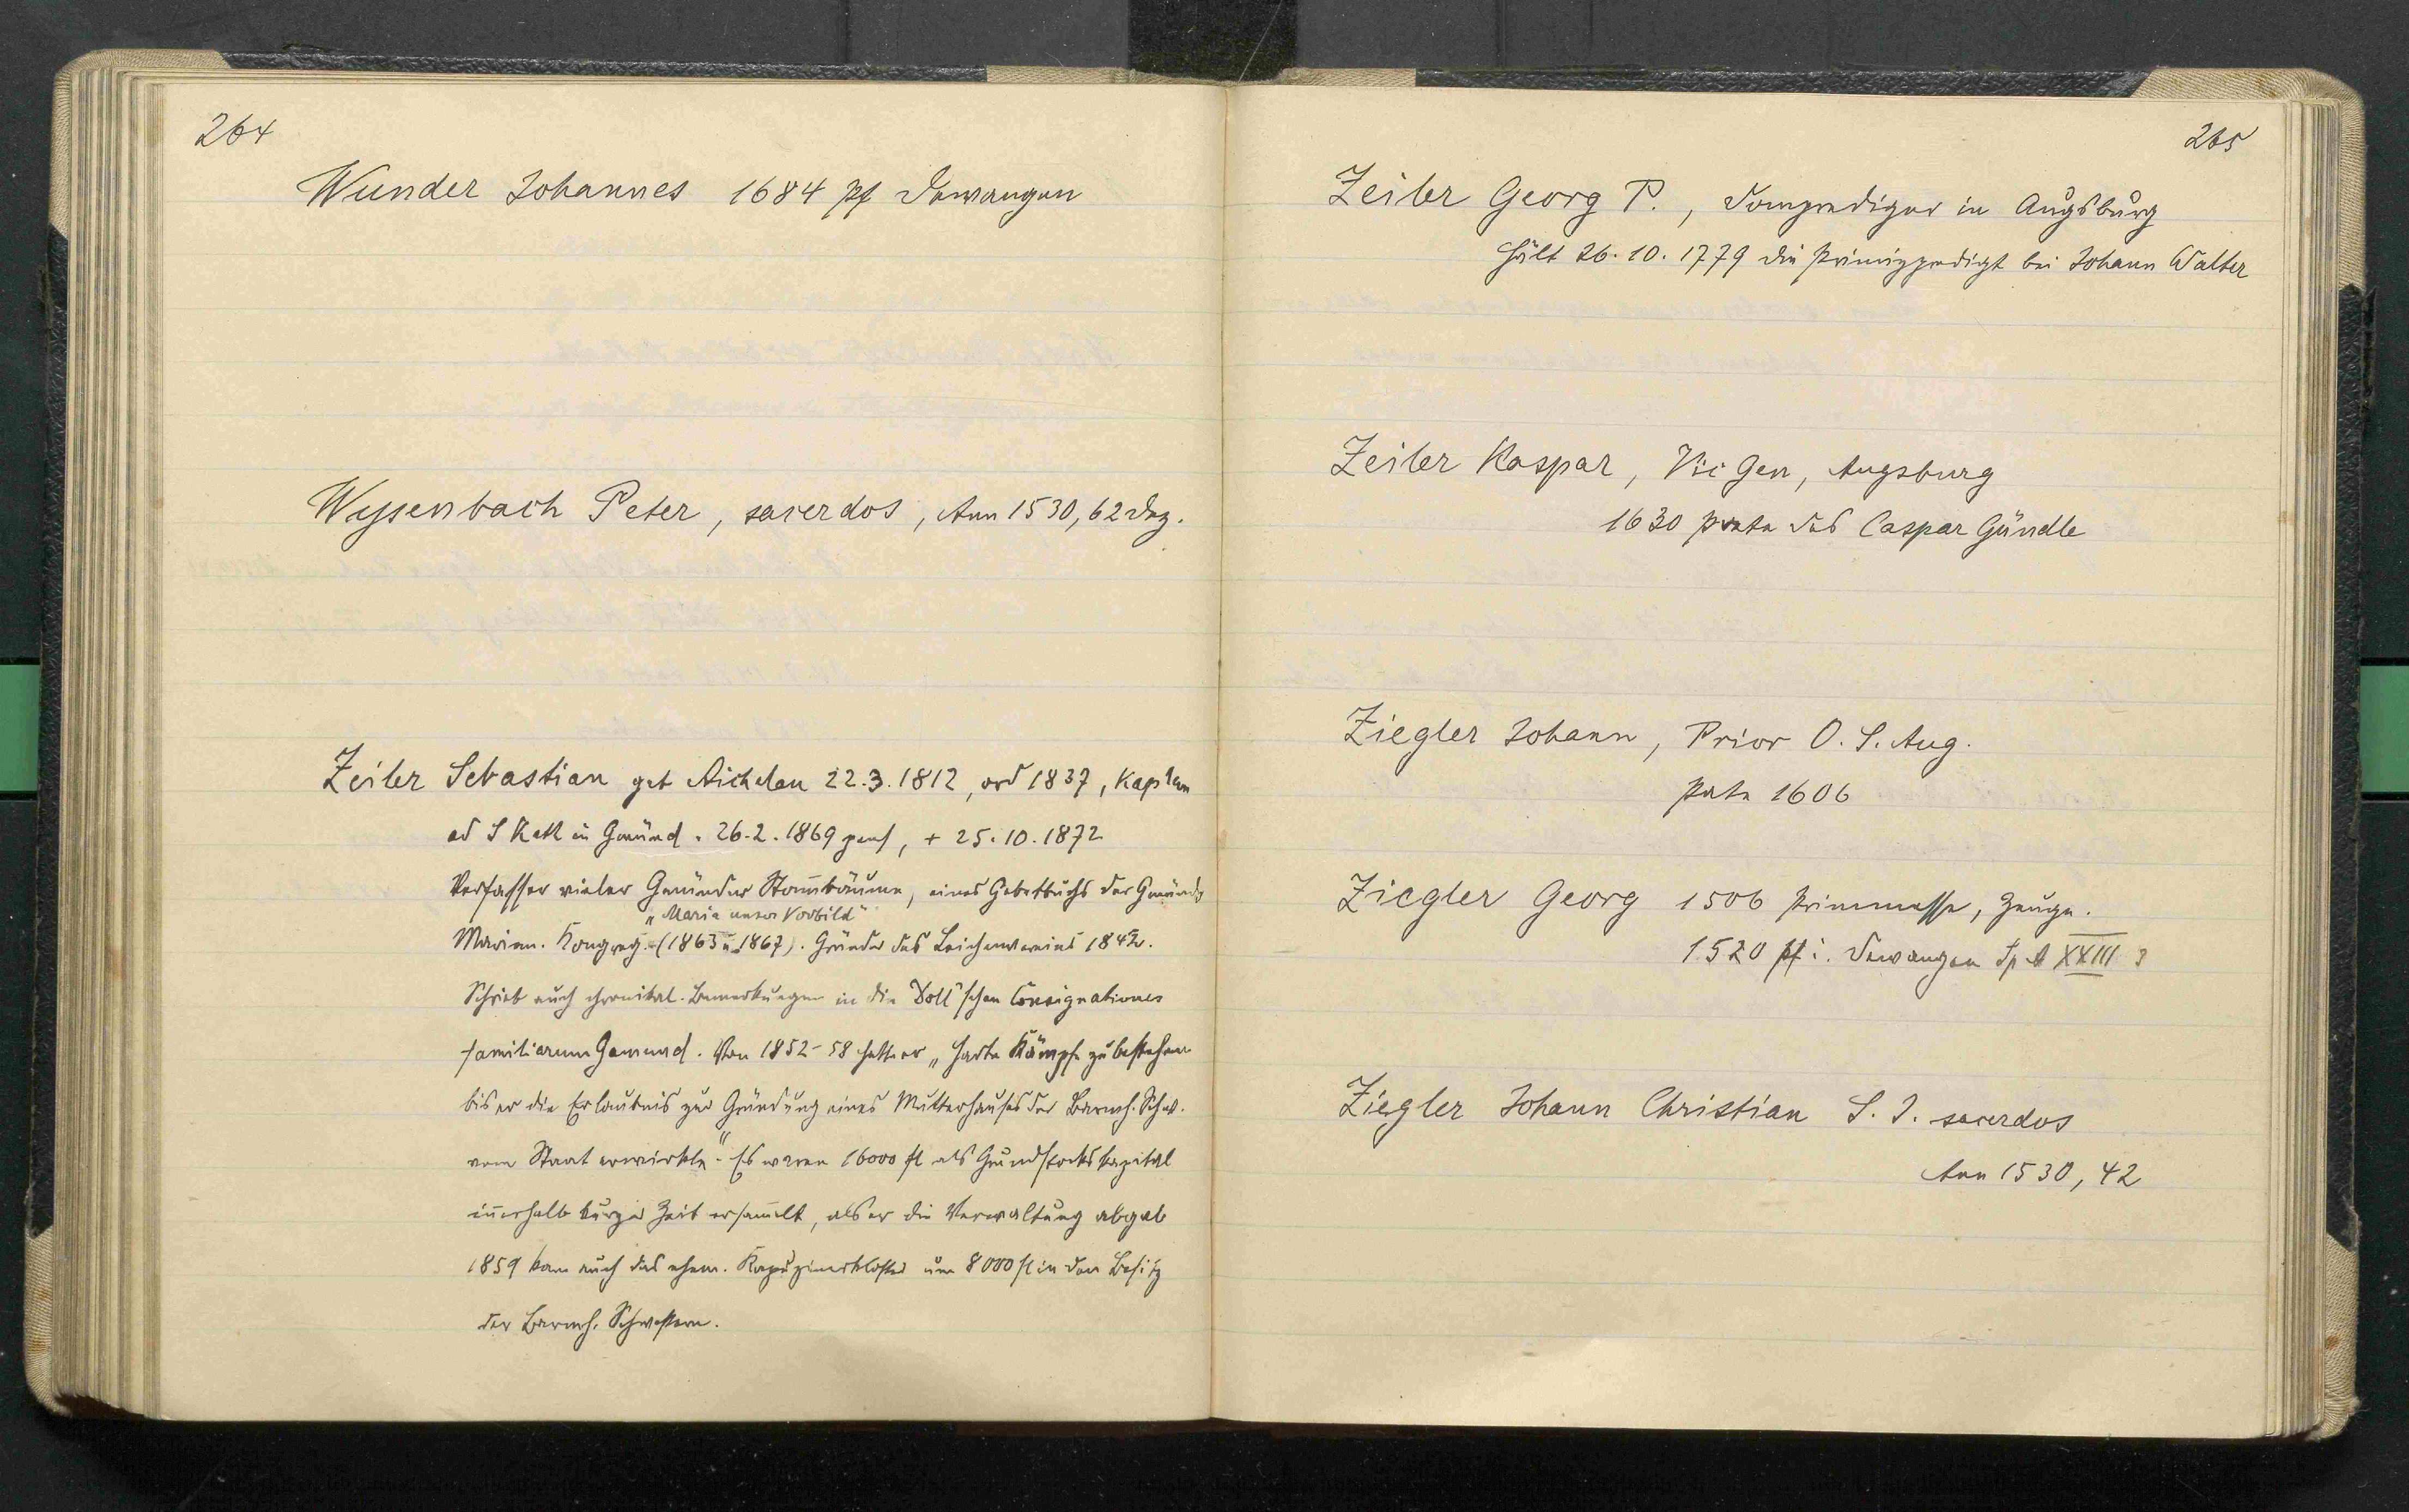 264
Wunder Johannes 1684 pf Dewangen
Wyssenbach Peter, sacerdos, Ann 1530, 62 Dez.
Zeiler Sebastian geb Aichelau 22.3.1812, ord 1837, Kaplan
ad S Kath in Gmünd. 26.2.1869 pens, + 25.10.1872
Verfasser vieler Gmünder Stammbäume, eines Gebetbuchs der Gmünder
„Maria unser Vorbild"
Marian. Kongreg. (1863 u 1867). Gründer des Leichenvereins 1842.
Schrieb auch chronikal. Bemerkungen in die Doll'schen Consignationes
familiarum Gamund. Von 1852-58 hatte er „harte Kämpfe zu bestehen
bis er die Erlaubnis zur Gründung eines Mutterhauses der Barmh. Schw.
vom Staat erwirkte". Es waren 16000 fl als Grundstockskapital
innerhalb kurzer Zeit ersammelt, als er die Verwaltung abgab
1859 kam auch das ehem. Kapuzinerkloster um 8000 fl in den Besitz
der Barmh. Schwestern.
265
Zeiler Georg P., Domprediger in Augsburg
hält 26.10.1779 die Primizpredigt bei Johann Walter
Zeiler Kaspar, Vic Gen, Augsburg
1630 Pate des Caspar Gündle
Ziegler Johann, Prior O. S. Aug.
Pate 1606
Ziegler Georg 1506 Frümmesse, Zeuge.
1520 pf i. Dewangen Sp A XXIII 3
Ziegler Johann Christian S. J. sacerdos
Ann 1530, 42